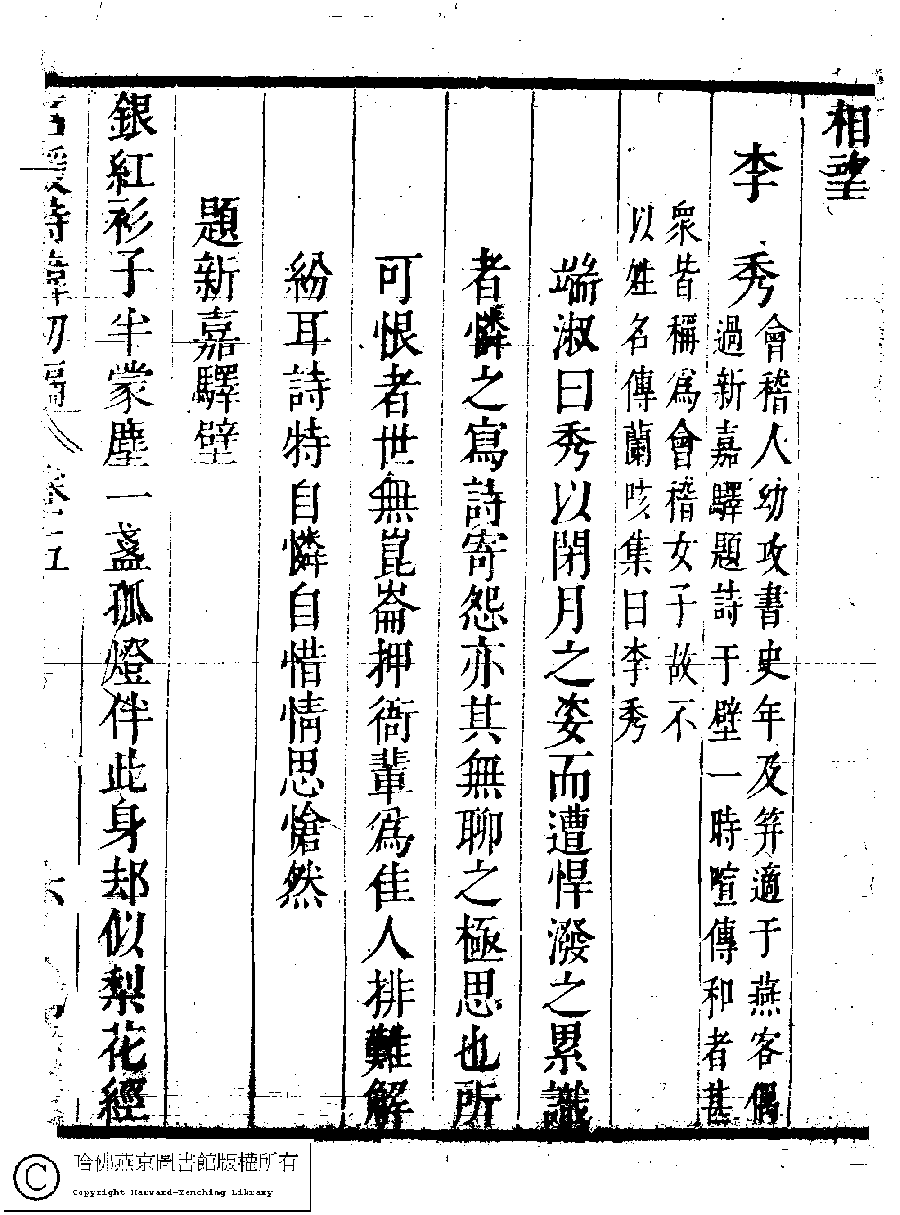 相望
李　秀
會稽人幼攻書史年及筓適于燕客偶
過新嘉驛題詩于壁一時喧傳和者甚
衆皆稱爲會稽女子故不
以姓名傳蘭咳集曰李秀
端淑曰秀以閉月之姿而遭悍潑之累識
者憐之寫詩寄怨亦其無聊之極思也所
可恨者世無崑崙押衙輩爲佳人排難解
紛耳詩特自憐自惜情思愴然
題新嘉驛壁
銀紅衫子半蒙塵一盞孤燈伴此身却似梨花經
名媛詩緯初編　卷十五　六
哈佛燕京圖書館版權所有
Copyright Harvard-Yenching Library